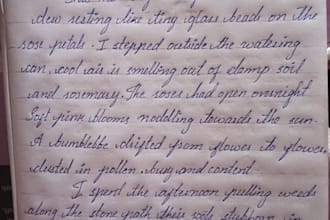 dew resting like tiny glass beads on the
rose petals. I stepped outside the watering
can, cool air is smelling out of damp soil
and rosemary. The roses had open overnight
Soft pink blooms nodding towards the sun.
A bumblebbe drifted from flower to flower,
dusted in pollen, busy and content.
I spent the afternoon pulling weeds
along the stone path their soils stubborn in